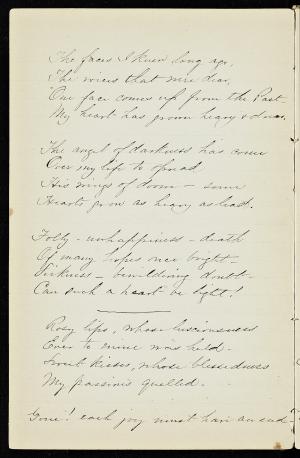 The faces I knew long ago,
The voices that were dear,
One face comes up from the Past—
My heart has grown heavy & drear.
The angel of darkness has come
Over my life to spread
His wings of doom — some
Hearts grow as heavy as lead.
Folly — unhappiness — death
Of many hopes once bright —
Sickness — bewildering doubt —
Can such a heart be light!
Rosy lips, whose lusciousness
Ever to mine was held —
Sweet kisses, whose blessedness
My passions quelled.
Gone! each joy must have an end —